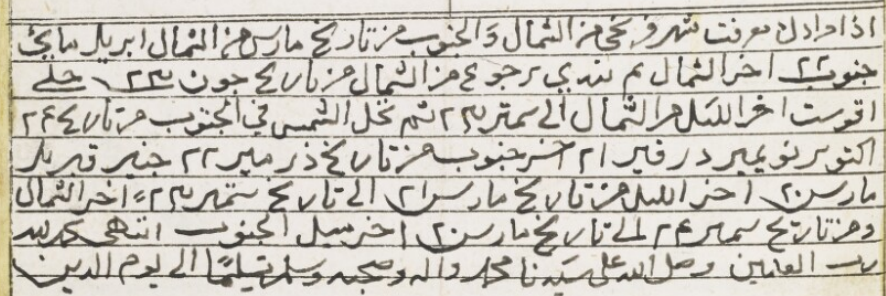 اذا اراد ان معرفت شهر فرنجي من الشمال والجنوب من تاريخ مارس من الشمال ابريل مايئ
جنوب ٢٢ اخر الشمال ثم تبتدي رجوع من الشمال من تاريخ جون ٢٣ جلي
اقوست اخر الليل من الشمال الى سمتبر ٢٣ ثم تحل الشمس في الجنوب من تاريخ ٢٤
اكتوبر نويمبر در قبر ٢١ اخر جنوب من تاريخ ذزمبر ٢٢ جنبر فبريل
مارس ٢٠ اخر الليل من تاريخ مارس ٢١ الى تاريخ ستمبر ٢٣ اخر الشمال
ومن تاريخ سمتبر ٢٤ الى تاريخ مارس ٢٠ اخر ميل الجنوب انتهى الحمد لله
رب العلمين وصلى الله على سيدنا محمد واله وصحبه وسلم تسليما الى يوم الدين